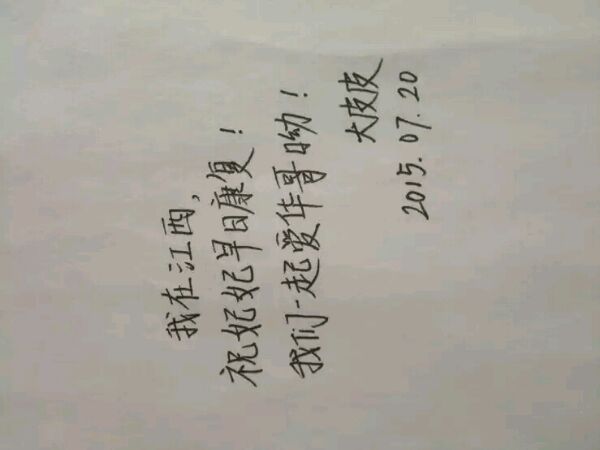 我在江西，
祝妃妃早日康复！
我们一起爱华哥呦！
大皮皮
2015.07.20